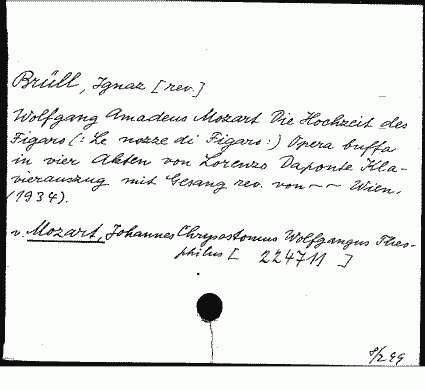 Brüll, Ignaz [rev.]
Wolfgang Amadeus Mozart Die Hochzeit des
Figaro (: Le nozze di Figaro :) Opera buffa
in vier Akten von Lorenzo Daponte Kla-
vierauszug mit Gesang rev. von ~ ~ Wien,
(1934).
v. Mozart, Johannes Chrysostomus Wolfgangus Theo-
philus [ 224711 ]
8/299